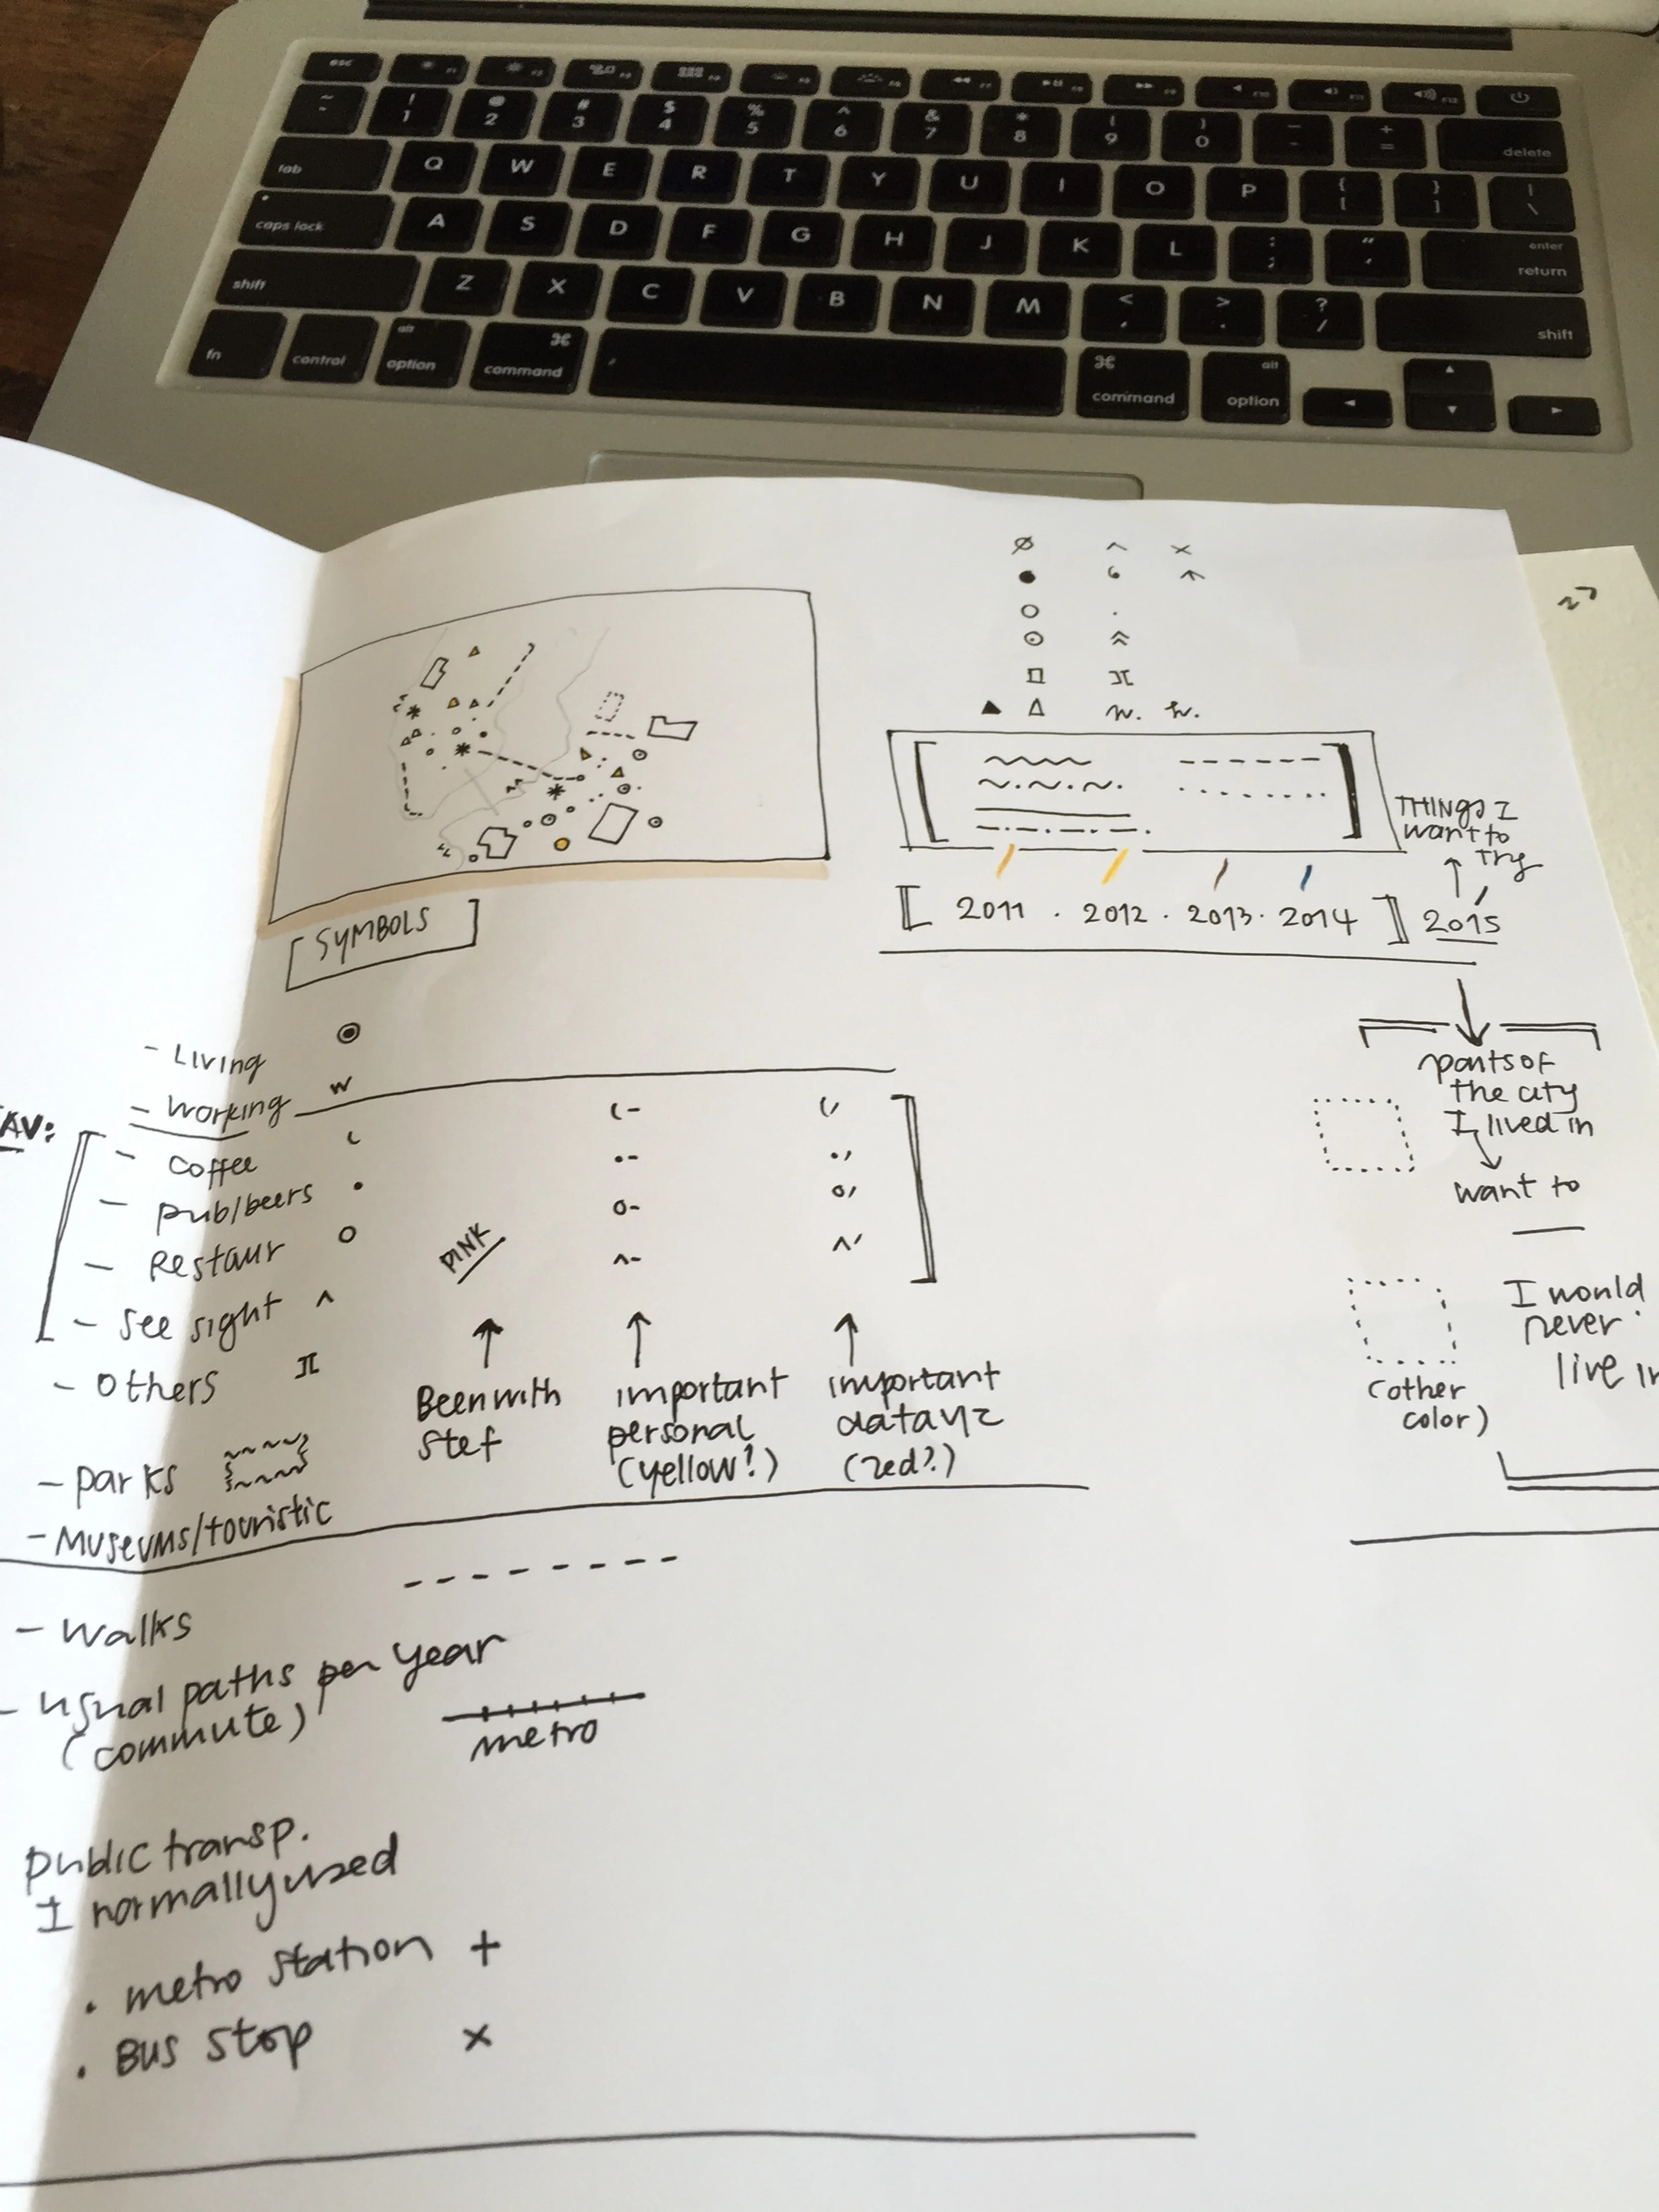 esc F1 F2 F3 F4 F5 F6 F7 F8 F9 F10 F11 F12
~ ` ! 1 @ 2 # 3 $ 4 % 5 ^ 6 & 7 * 8 ( 9 ) 0 _ - + = delete
tab Q W E R T Y U I O P { [ } ] | \
caps lock A S D F G H J K L : ; " ' enter return
shift Z X C V B N M < , > . ? / shift
fn control alt option ⌘ command ⌘ command alt option
THINGS I
want to
try
[ 2011 . 2012 . 2013 . 2014 ] 2015
[SYMBOLS]
- Living
- Working W
AV:
- Coffee
- pub/beers
- Restaur
- See sight
- Others
- parks
- Museums/touristic
PINK
Been with
Stef
important
personal
(yellow?)
important
datavz
(red?)
parts of
the city
I lived in
want to
I would
never
live in
(other
color)
- Walks
- usual paths per year
(commute)
metro
public transp.
I normally used
. metro station +
. Bus stop x